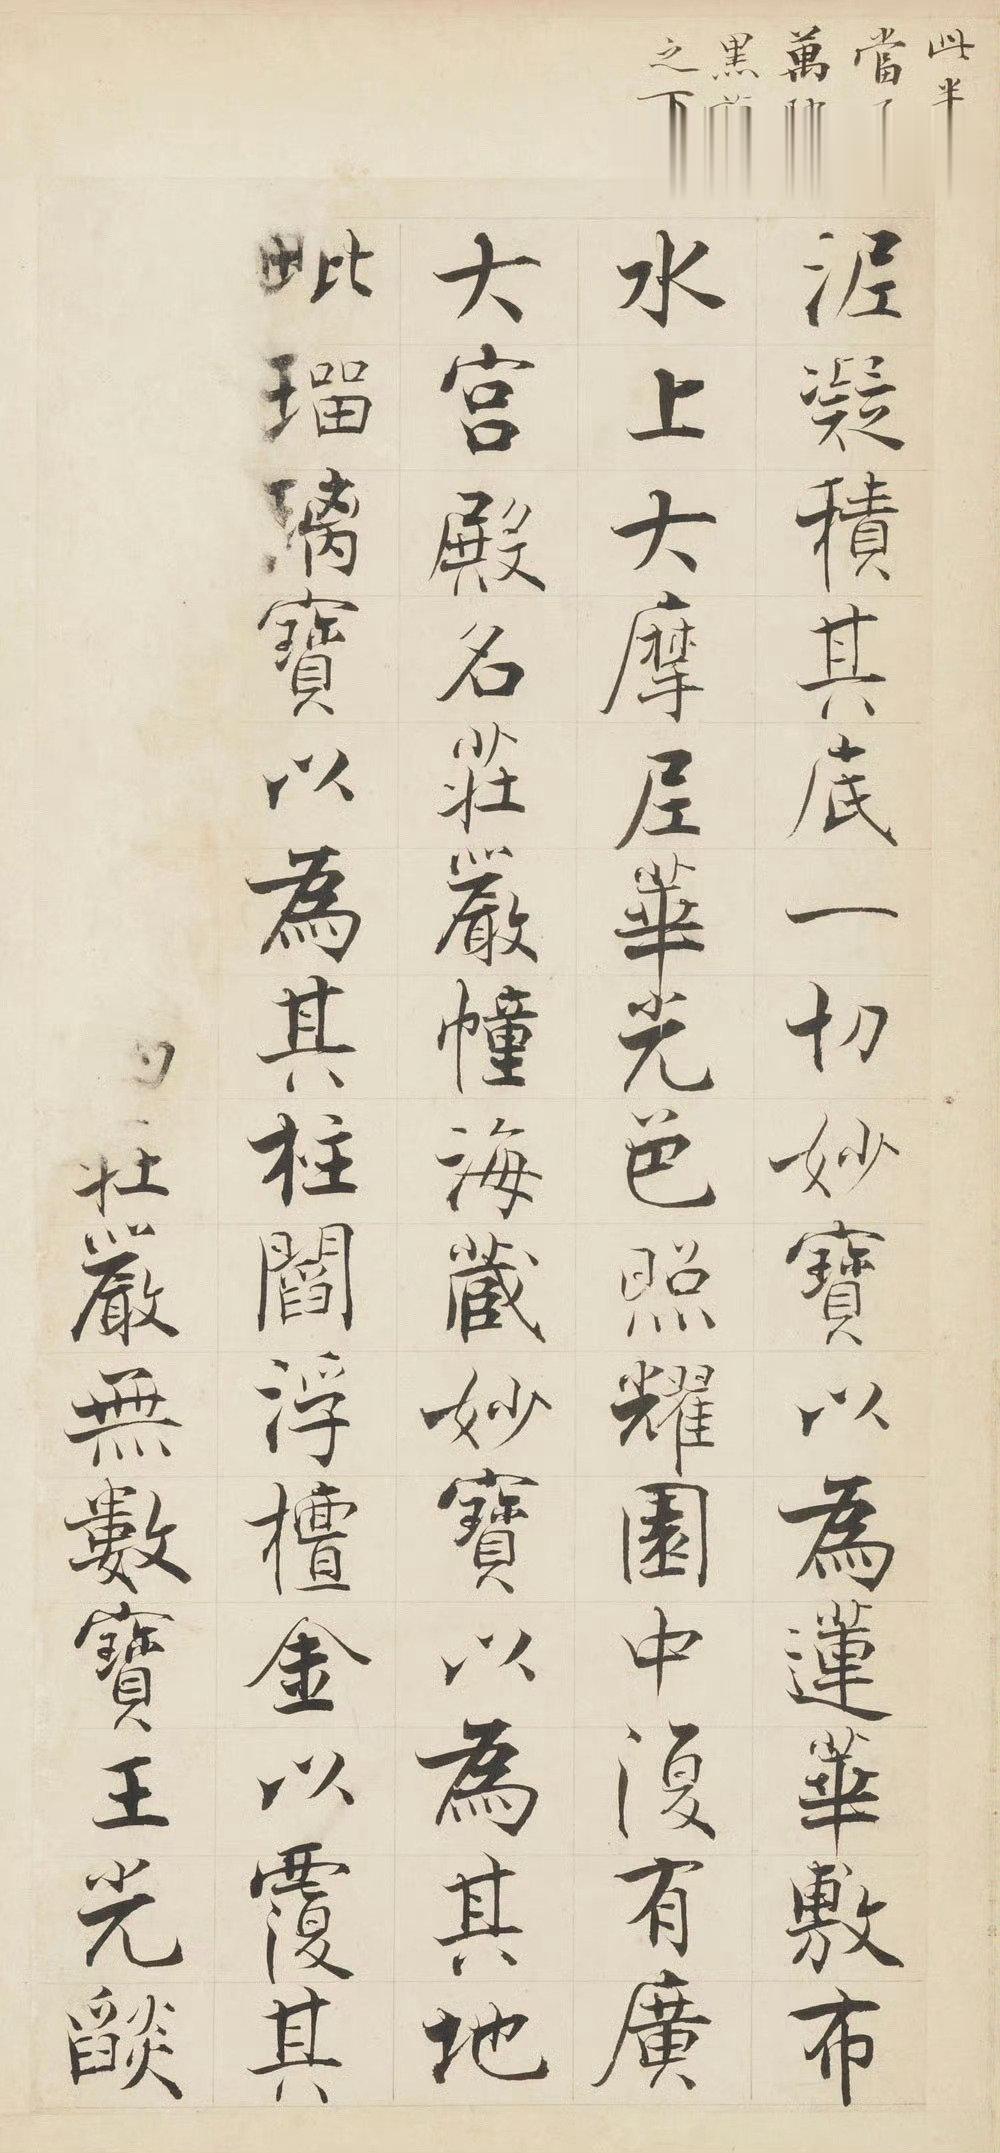 此半
當
萬
黑
之下
泥凝積其底一切妙寶以為蓮華敷布
水上大摩尼華光色照耀園中復有廣
大宮殿名莊嚴幢海藏妙寶以為其地
毗瑠璃寶以為其柱閻浮檀金以覆其
莊嚴無數寶王光燄